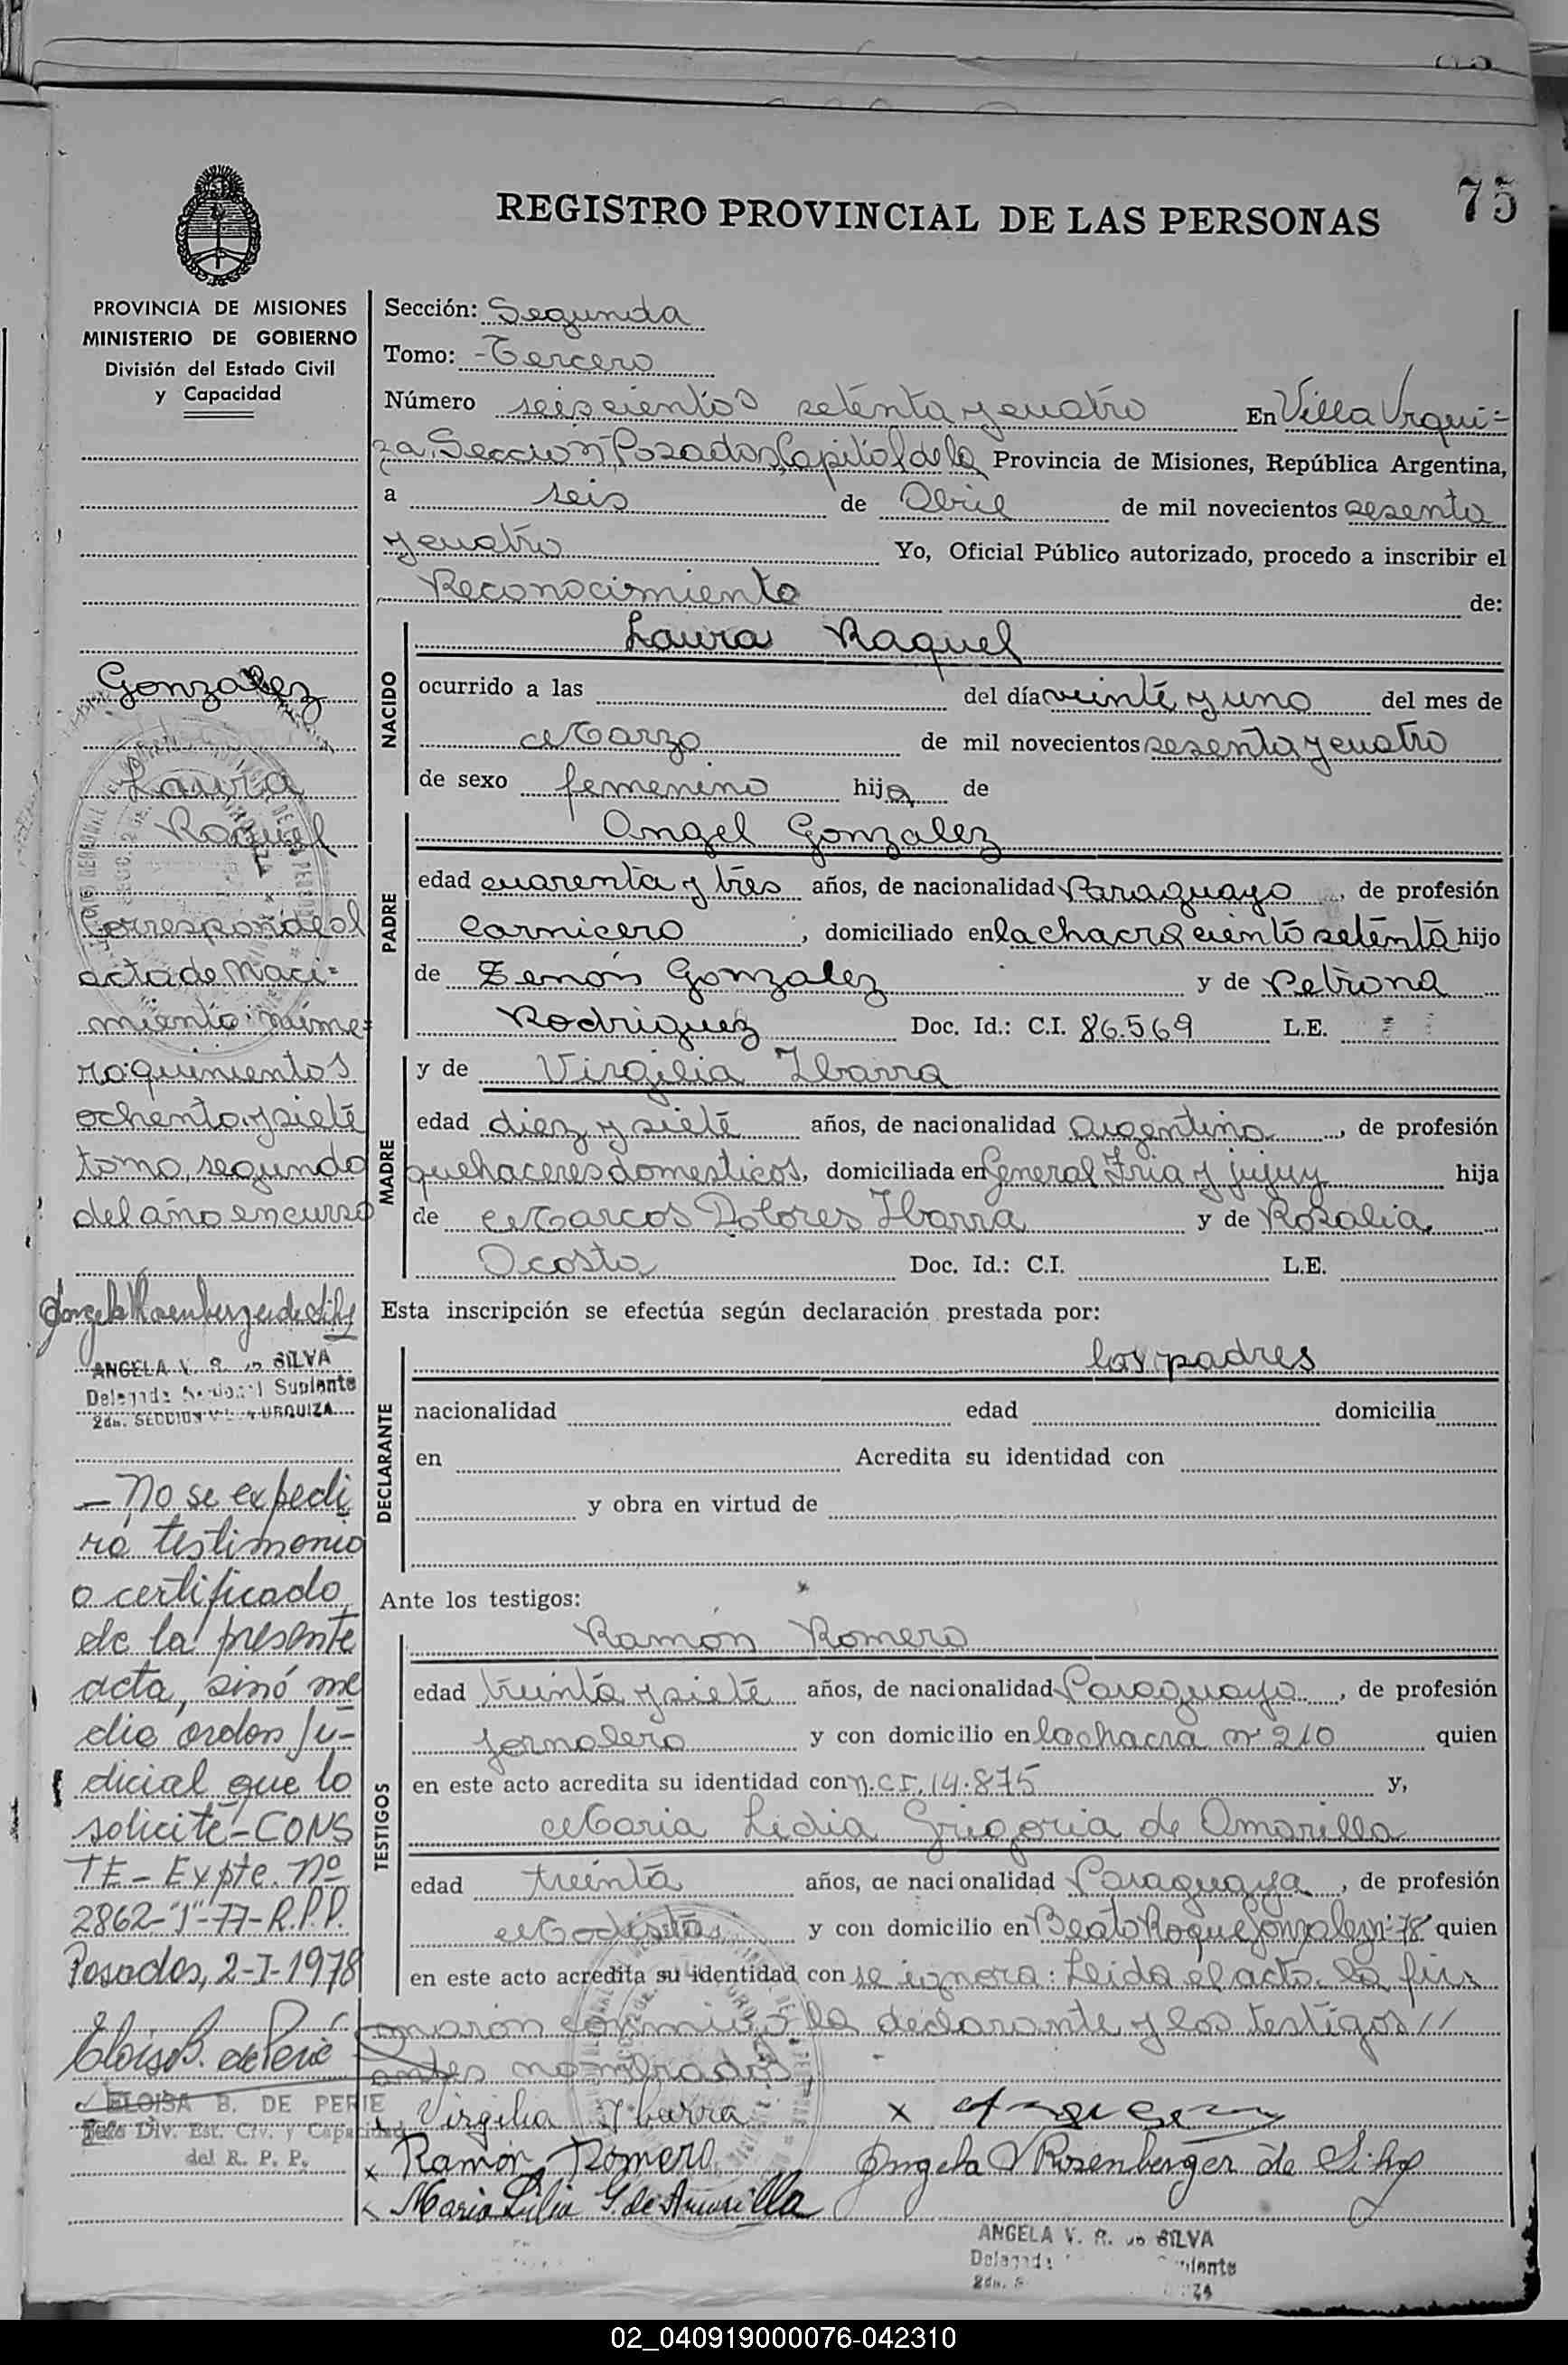 75
REGISTRO PROVINCIAL DE LAS PERSONAS
PROVINCIA DE MISIONES
MINISTERIO DE GOBIERNO
División del Estado Civil
y Capacidad
Gonzalez
Laura
Raquel
Corresponde al
acta de Naci=
miento núme=
ro: quinientos
ochenta y siete
tomo, segundo
del año en curso
ANGELA V. R. de SILVA
Delegada Seccional Suplente
2da. SECCION VILLA URQUIZA
— No se expedi
rá testimonio
o certificado
de la presente
acta, sinó me
dia orden Ju-
dicial que lo
solicite - CONS
TE - Expte. Nº
2862-"J"-77-R.P.P.
Posadas, 2-I-1978
Eloisa B. de Perié
ELOISA B. DE PERIE
Jefe Div. Est. Civ. y Capacidad
del R. P. P.
Sección: Segunda
Tomo: - Tercero
Número seiscientos setenta y cuatro En Villa Urqui=
za, Sección, Posadas, Capital de la Provincia de Misiones, República Argentina,
a seis de Abril de mil novecientos sesenta
y cuatro Yo, Oficial Público autorizado, procedo a inscribir el
Reconocimiento de:
NACIDO
Laura Raquel
ocurrido a las del día veinte y uno del mes de
Marzo de mil novecientos sesenta y cuatro
de sexo femenino hija de
PADRE
Angel Gonzalez
edad cuarenta y tres años, de nacionalidad Paraguayo, de profesión
Carnicero, domiciliado en la chacra ciento setenta hijo
de Zenón Gonzalez y de Petrona
Rodriguez Doc. Id.: C.I. 86.569 L.E.
MADRE
y de Virgilia Ibarra
edad diez y siete años, de nacionalidad Argentina, de profesión
quehaceres domesticos, domiciliada en General Fria y jujuy hija
de Marcos Dolores Ibarra y de Rosalia
Acosta Doc. Id.: C.I. L.E.
Esta inscripción se efectúa según declaración prestada por:
DECLARANTE
los padres
nacionalidad edad domicilia
en Acredita su identidad con
y obra en virtud de
Ante los testigos:
TESTIGOS
Ramón Romero
edad treinta y siete años, de nacionalidad Paraguayo, de profesión
Jornalero y con domicilio en la chacra nº 210 quien
en este acto acredita su identidad con n.C.I. 14.875 y,
Maria Lidia Grigoria de Amarilla
edad treinta años, de nacionalidad Paraguaya, de profesión
Modista y con domicilio en Beato Roque Gonzalez nº 78 quien
en este acto acredita su identidad con se ignora: Leida el acta. la fir-
maron conmigo la declarante y los testigos //
antes nombrados,
x Virgilia Ibarra x
x Ramón Romero Angela V Rosenberger de Silva
x Maria Lidia G. de Amarilla
ANGELA V. R. de SILVA
02_040919000076-042310